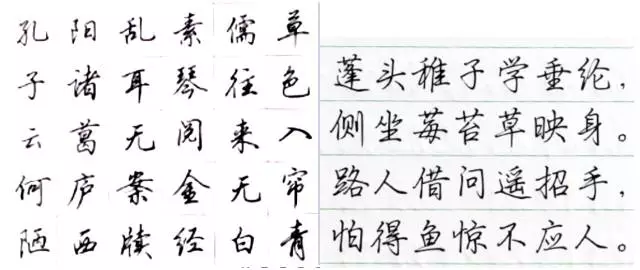 草色入帘青
儒往来无白
素琴阅金经
乱耳无案牍
阳诸葛庐西
孔子云何陋
蓬头稚子学垂纶,
侧坐莓苔草映身。
路人借问遥招手,
怕得鱼惊不应人。